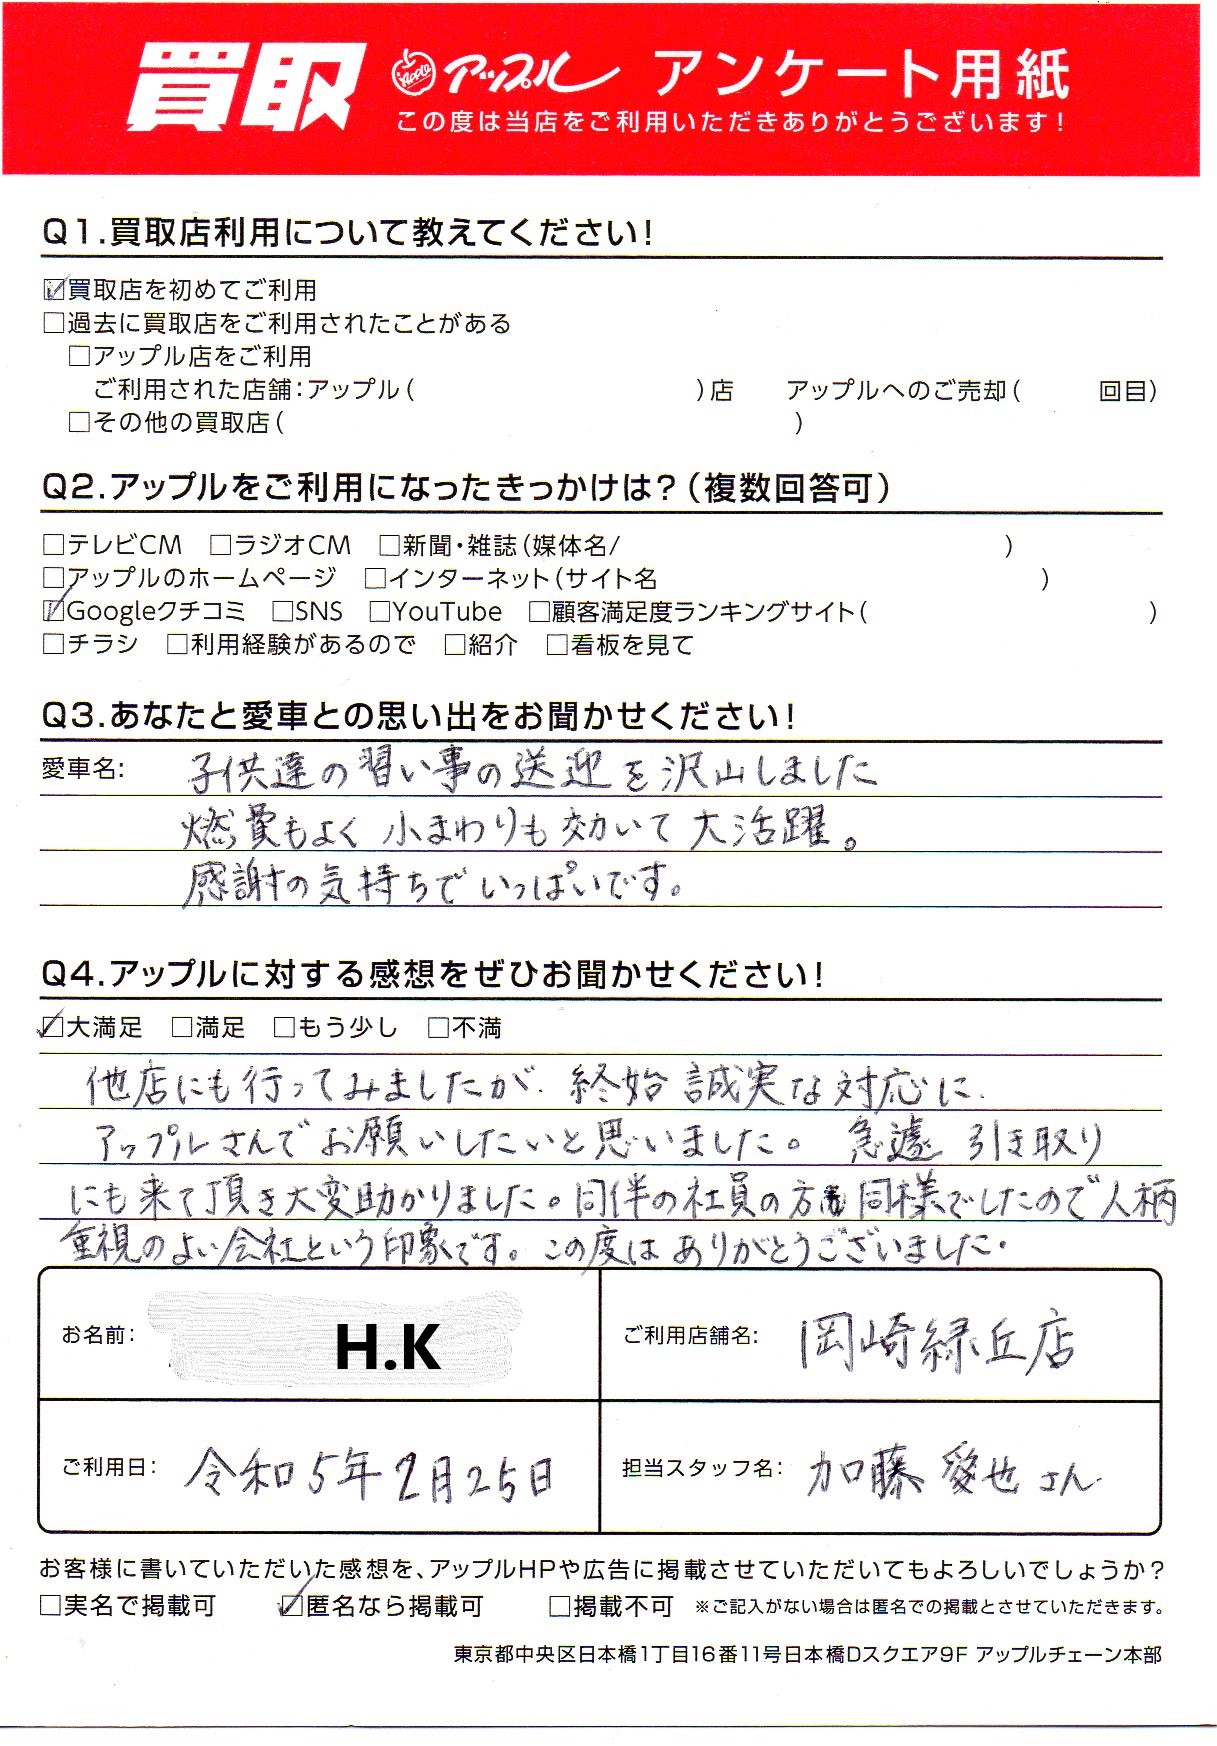 買取 Apple アップル アンケート用紙
この度は当店をご利用いただきありがとうございます!
Q1.買取店利用について教えてください!
☑買取店を初めてご利用
□過去に買取店をご利用されたことがある
□アップル店をご利用
ご利用された店舗:アップル( )店 アップルへのご売却( 回目)
□その他の買取店( )
Q2.アップルをご利用になったきっかけは?(複数回答可)
□テレビCM □ラジオCM □新聞・雑誌(媒体名/ )
□アップルのホームページ □インターネット(サイト名 )
☑Googleクチコミ □SNS □YouTube □顧客満足度ランキングサイト( )
□チラシ □利用経験があるので □紹介 □看板を見て
Q3.あなたと愛車との思い出をお聞かせください!
愛車名: 子供達の習い事の送迎を沢山しました
燃費もよく 小まわりも効いて大活躍。
感謝の気持ちでいっぱいです。
Q4.アップルに対する感想をぜひお聞かせください!
☑大満足 □満足 □もう少し □不満
他店にも行ってみましたが、終始 誠実な対応に、
アップルさんでお願いしたいと思いました。 急遽 引き取り
にも来て頂き大変助かりました。同伴の社員の方も同様でしたので人柄
重視のよい会社という印象です。この度はありがとうございました.
お名前: H.K ご利用店舗名: 岡崎緑丘店
ご利用日: 令和5年2月25日 担当スタッフ名: 加藤 愛也 さん
お客様に書いていただいた感想を、アップルHPや広告に掲載させていただいてもよろしいでしょうか?
□実名で掲載可 ☑匿名なら掲載可 □掲載不可 ※ご記入がない場合は匿名での掲載とさせていただきます。
東京都中央区日本橋1丁目16番11号日本橋Dスクエア9F アップルチェーン本部